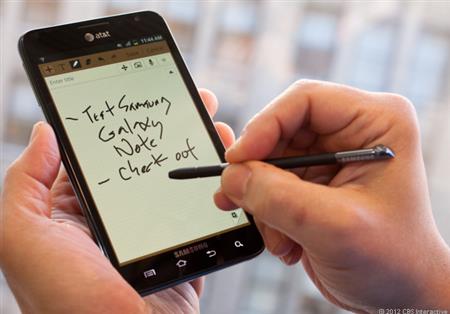 at&t
11:44 AM
Save Cancel
T
Enter title
- Test Samsung
Galaxy
Note
- Check out
SAMSUNG
SAMSUNG
© 2012 CBS Interactive